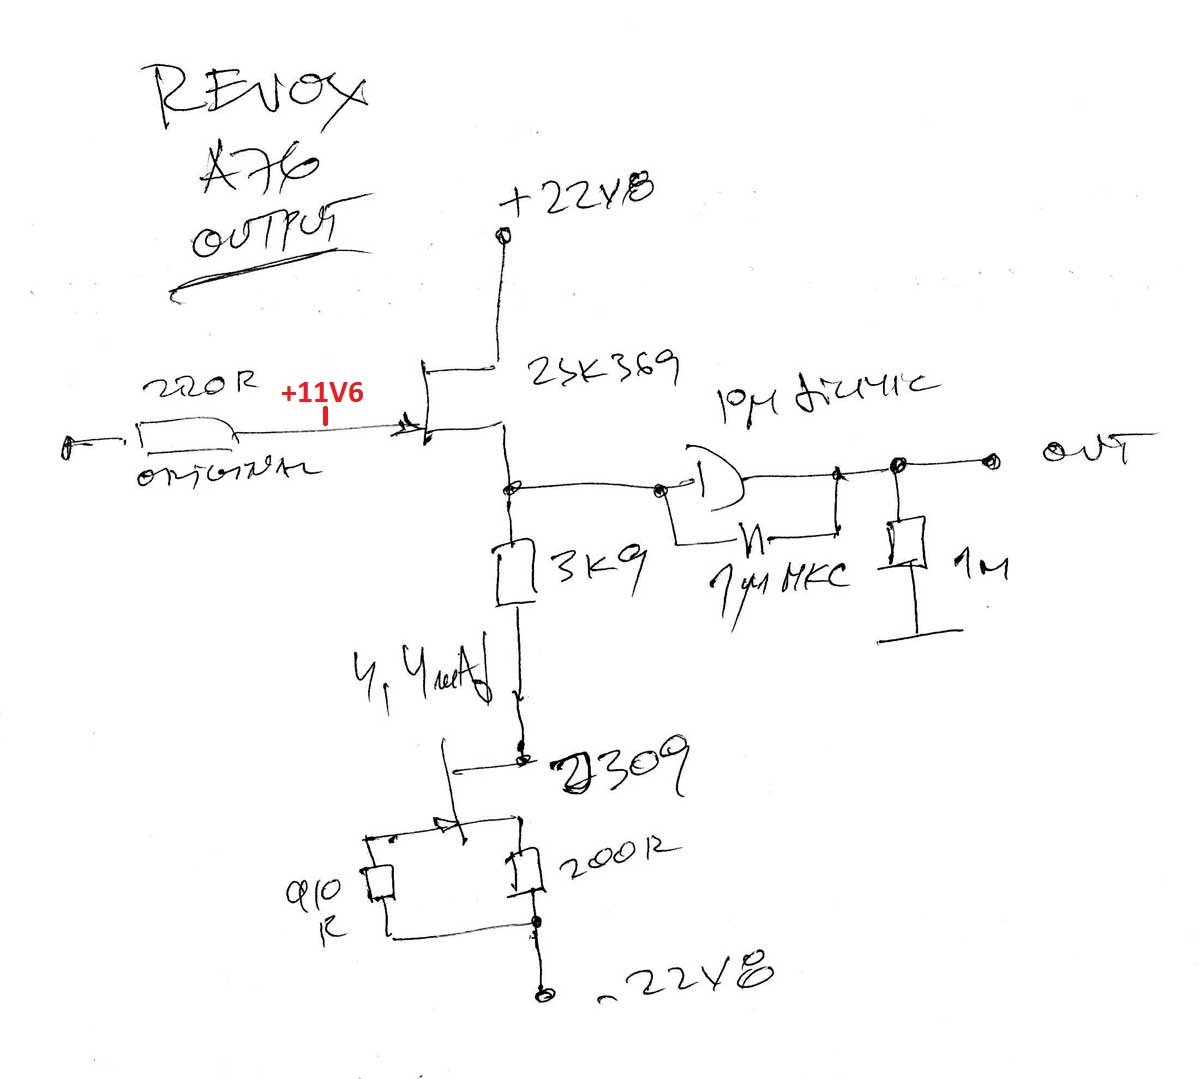 REVOX
A76
OUTPUT
+22V8
220R
+11V6
ORIGINAL
2SK369
10µ
OUT
3K9
1µ MKC
1M
4,4mA
J309
910
R
200R
-22V8